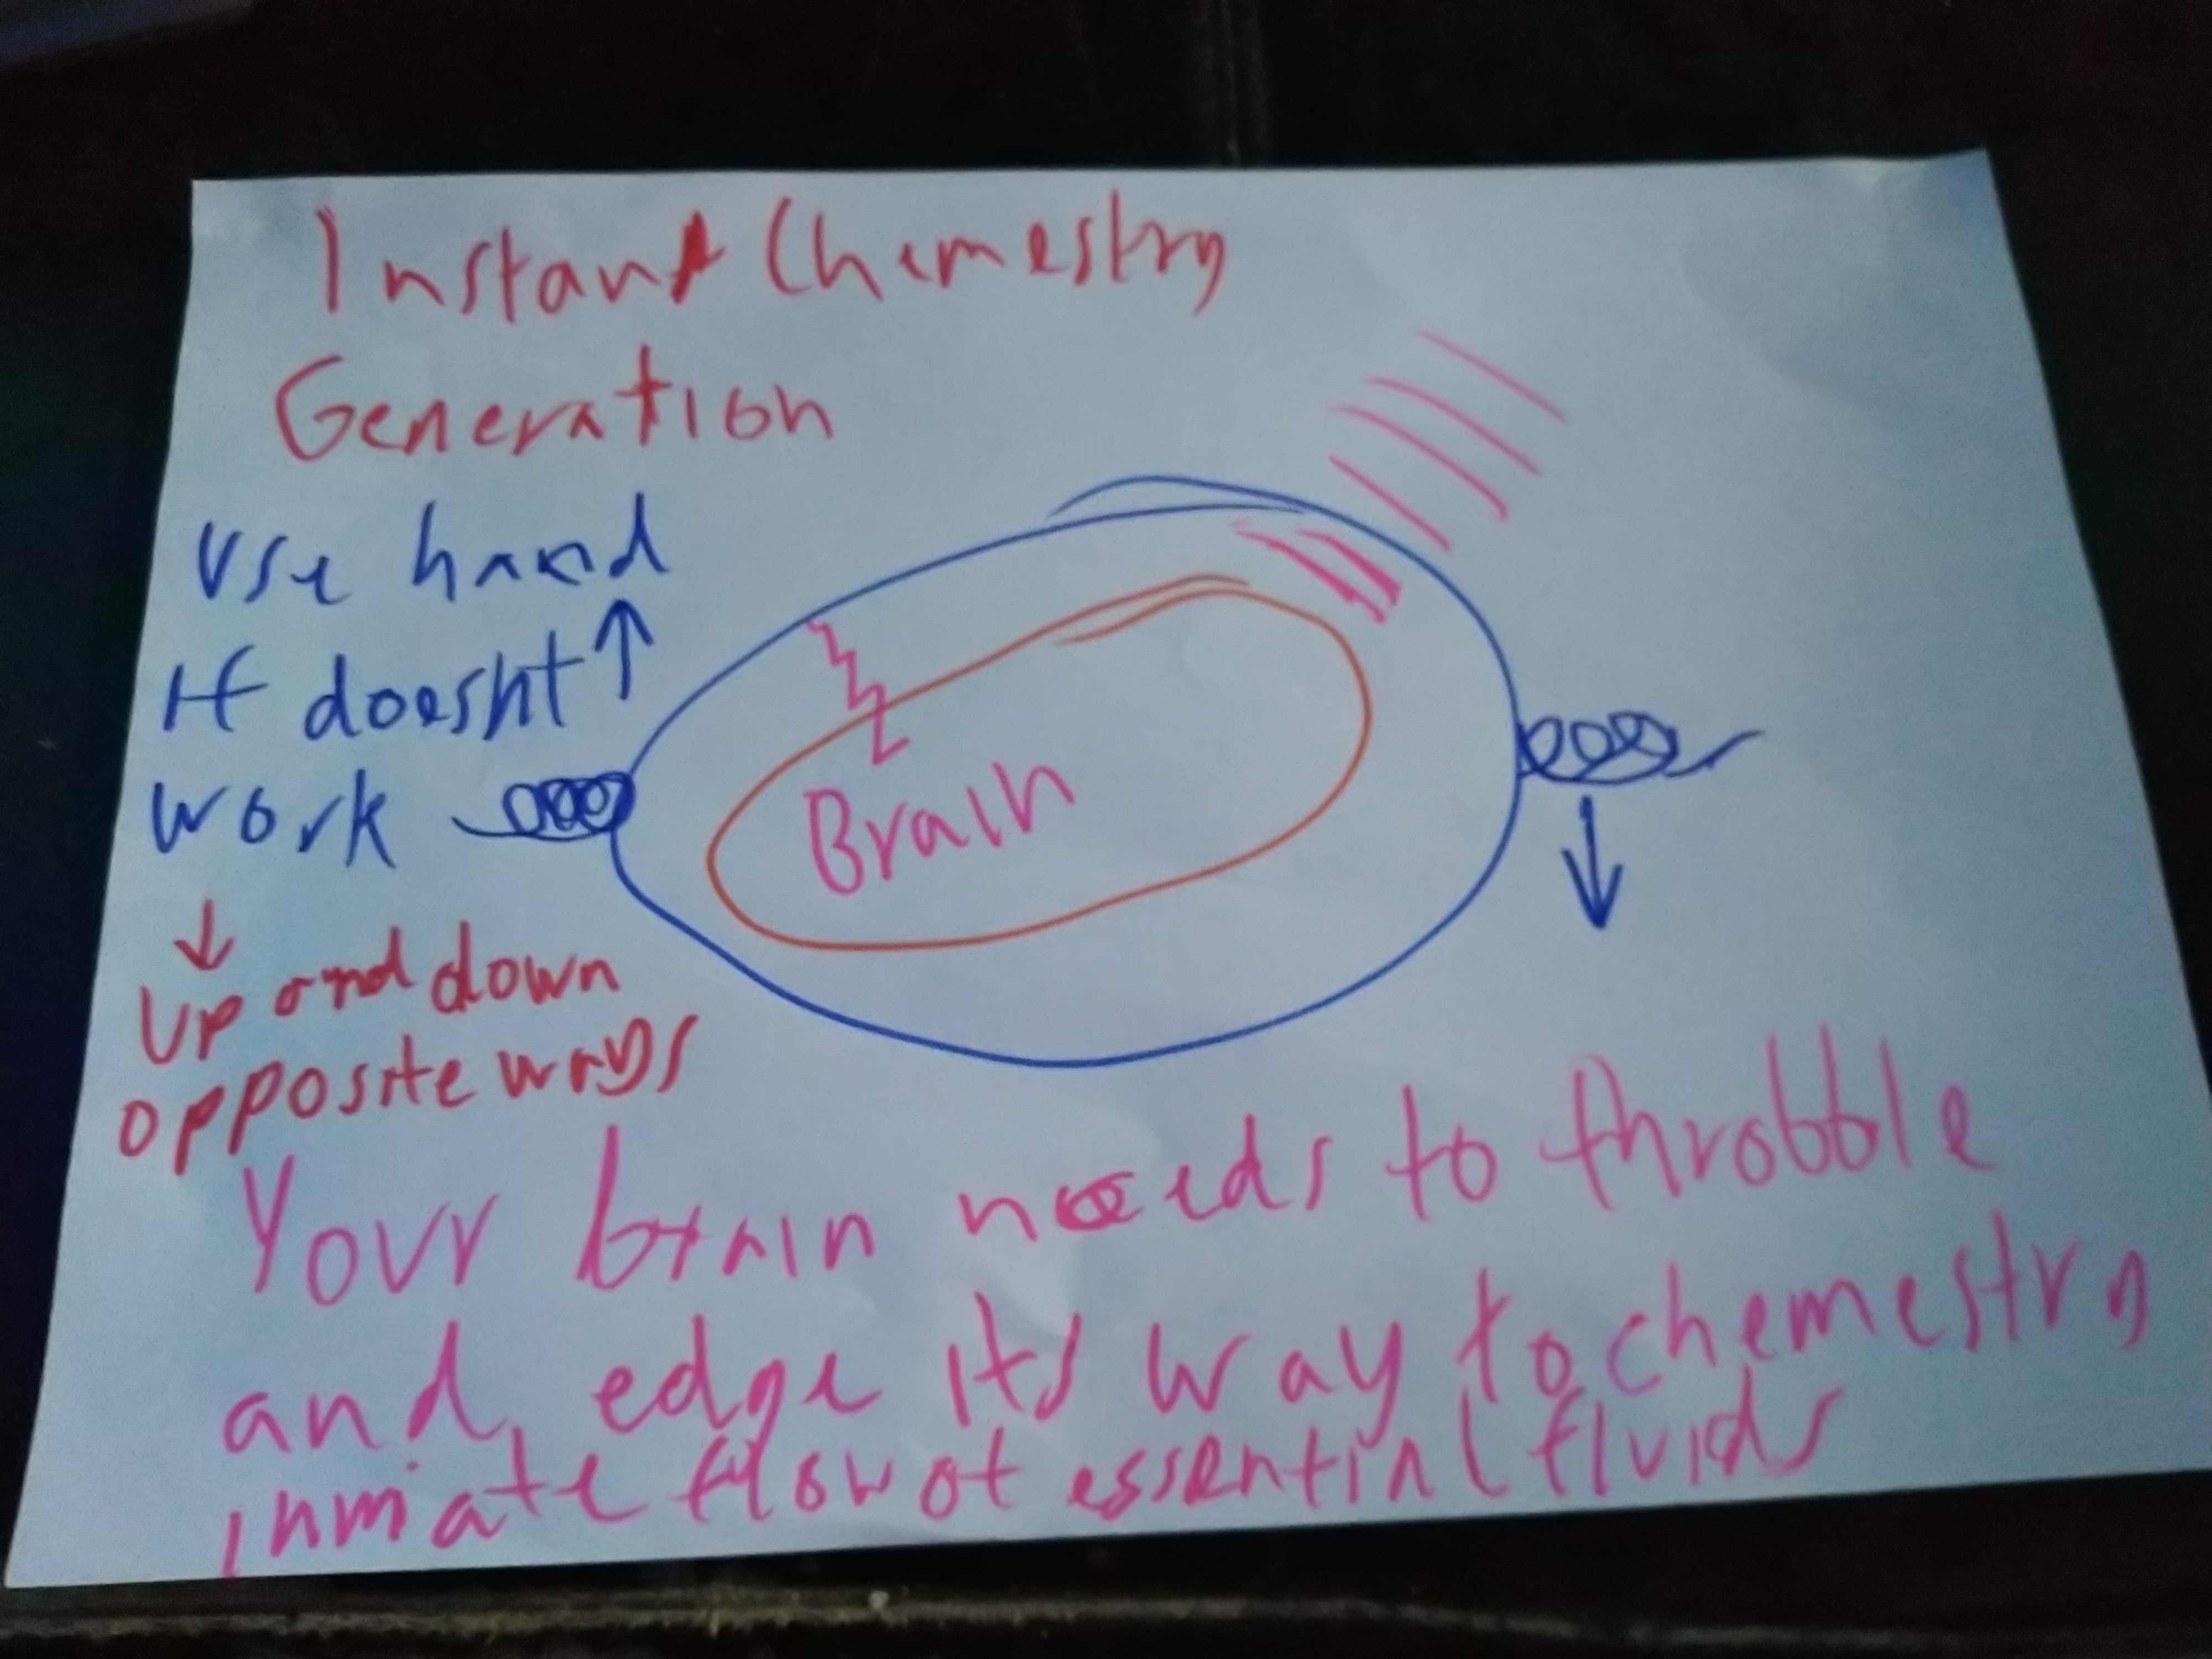 Instant Chemestry
Generation
Use hand
If doesnt
work
Up and down
opposite ways
Brain
Your brain needs to throbble
and edge its way to chemestry
inmate flow of essential fluids